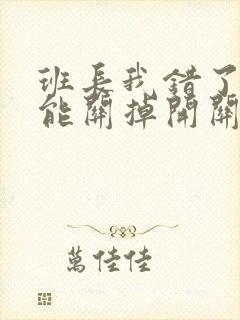 班长我错了
能關掉開關
萬佳佳